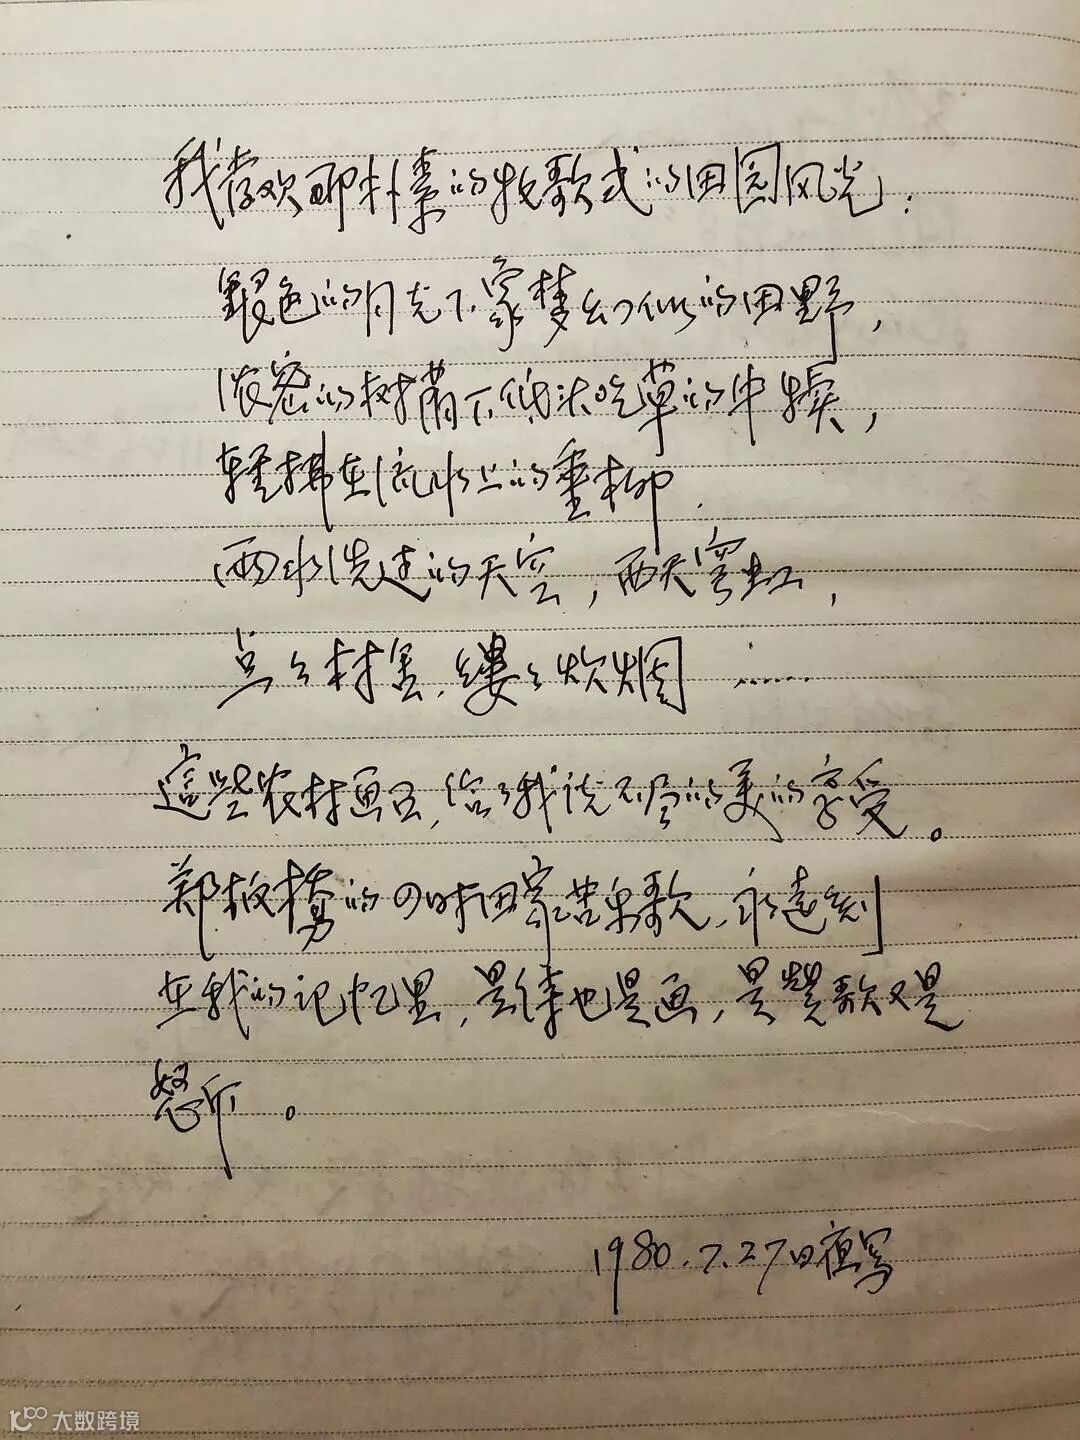 我喜欢那朴素的牧歌式的田园风光：
银色的月光下，家梦幻似的田野，
浓密的树荫下低头吃草的牛犊，
轻拂在流水上的垂柳，
雨水洗过的天空，雨天穹虹，
点点村舍，缕缕炊烟……
這些农村画面，给了我说不尽的美的享受。
郑板桥的四时田家苦乐歌，永远刻
在我的记忆里，是诗也是画，是赞歌又是
怒斥。
1980.7.27日夜写
大数跨境